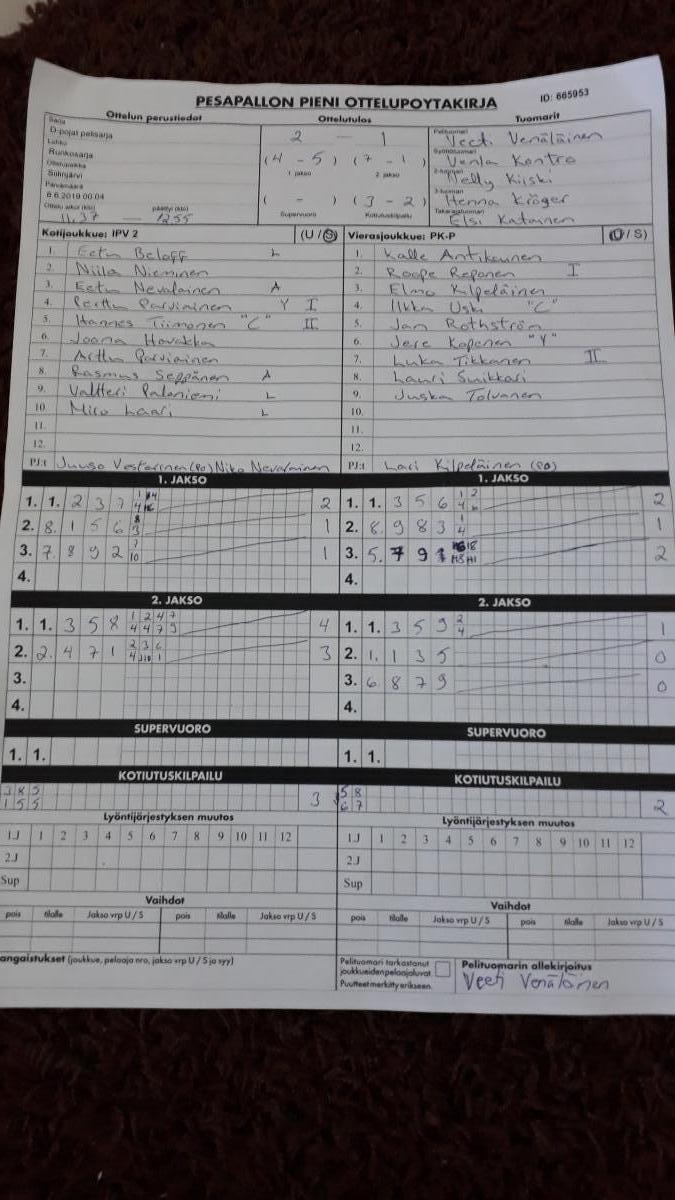 PESÄPALLON PIENI OTTELUPÖYTÄKIRJA ID: 665953
Ottelun perustiedot Ottelutulos Tuomarit
Sarja
D-pojat peksarja
Lohko
Runkosarja
Ottelupaikka
Siilinjärvi
Päivämäärä
6.6.2019 00:04
Ottelu alkoi (klo) päättyi (klo)
11.37 — 12.55
2 — 1
(4 - 5) (7 - 1)
1. jakso 2. jakso
( - ) (3 - 2)
Supervuoro Kotiutuskilpailu
Pelituomari
Veeti Venäläinen
Syöttötuomari
Venla Kontro
2-tuomari
Nelly Kiiski
3-tuomari
Henna Kröger
Takarajatuomari
Elsi Katainen
Kotijoukkue: IPV 2 (U / S) Vierasjoukkue: PK-P (U / S)
1. Eetu Beloff L 1. Kalle Antikainen
2. Niila Nieminen 2. Roope Reponen I
3. Eetu Nevalainen A 3. Elmo Kilpeläinen
4. Perttu Parviainen Y I 4. Ilkka Uski "C"
5. Hannes Tiimonen "C" II 5. Jan Rothström
6. Joona Havukka 6. Jere Koponen "Y"
7. Arttu Parviainen 7. Luka Tikkanen II
8. Rasmus Seppänen A 8. Lauri Suikkari
9. Valtteri Paloniemi L 9. Juska Tolvanen
10. Miro Laari L 10.
11. 11.
12. 12.
PJ:t Juuso Vestarinen (PO) Niko Nevalainen PJ:t Lari Kilpeläinen (PO)
1. JAKSO 1. JAKSO
1. 1. 2 3 7 2 1. 1. 3 5 6 2
2. 8. 1 5 6 1 2. 8. 9 8 3 1
3. 7. 8 9 2 1 3. 5. 7 9 2
4. 4.
2. JAKSO 2. JAKSO
1. 1. 3 5 8 4 1. 1. 3 5 9 1
2. 2. 4 7 1 3 2. 1. 1 3 5 0
3. 3. 6. 8 7 9 0
4. 4.
SUPERVUORO SUPERVUORO
1. 1. 1. 1.
KOTIUTUSKILPAILU KOTIUTUSKILPAILU
3 8 5 5 8
1 5 5 3 6 7 2
Lyöntijärjestyksen muutos Lyöntijärjestyksen muutos
1J 1 2 3 4 5 6 7 8 9 10 11 12 1J 1 2 3 4 5 6 7 8 9 10 11 12
2J 2J
Sup Sup
Vaihdot Vaihdot
pois tilalle Jakso vrp U / S pois tilalle Jakso vrp U / S pois tilalle Jakso vrp U / S pois tilalle Jakso vrp U / S
angaistukset (joukkue, pelaaja nro, jakso vrp U / S ja syy)
Pelituomari tarkastanut
joukkueiden pelaajaluvat.
Puutteet merkitty erikseen.
Pelituomarin allekirjoitus
Veeti Venäläinen